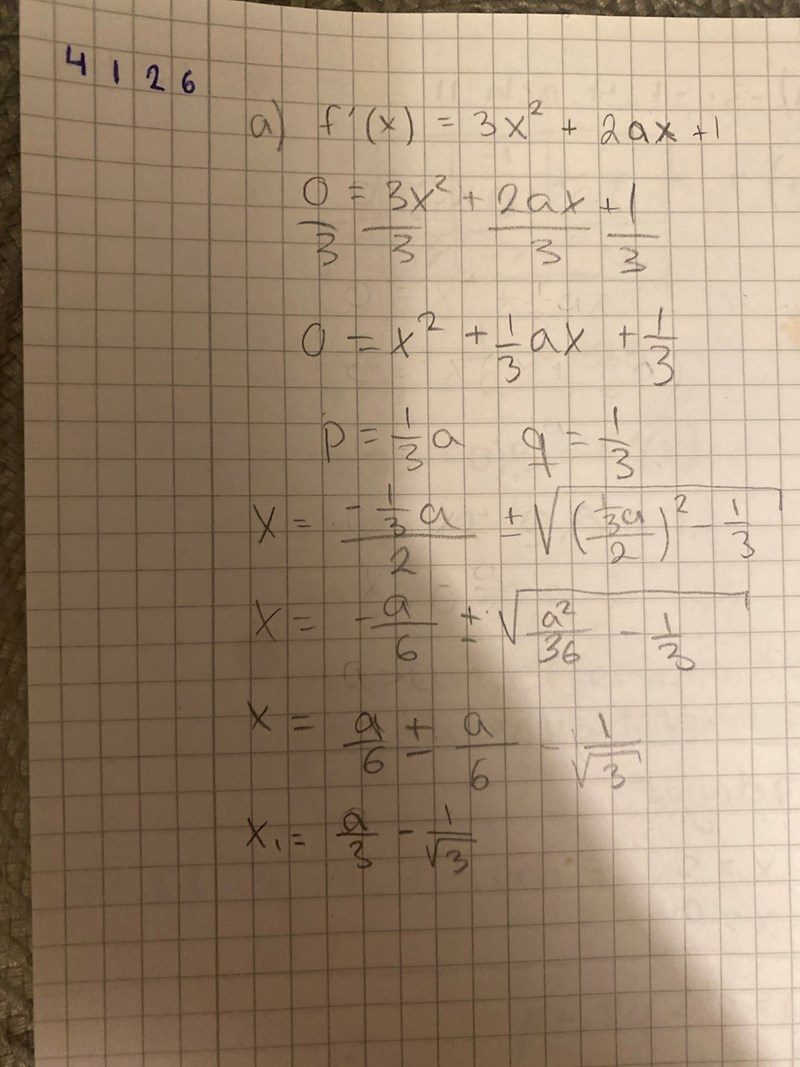 4126
a) f'(x) = 3x² + 2ax + 1
0/3 = 3x²/3 + 2ax/3 + 1/3
0 = x² + 1/3 ax + 1/3
p = 1/3 a q = 1/3
x = -1/3 a / 2 ± √((1/3 a / 2)² - 1/3)
x = -a/6 ± √(a²/36 - 1/3)
x = a/6 ± a/6 - 1/√3
x₁ = a/3 - 1/√3